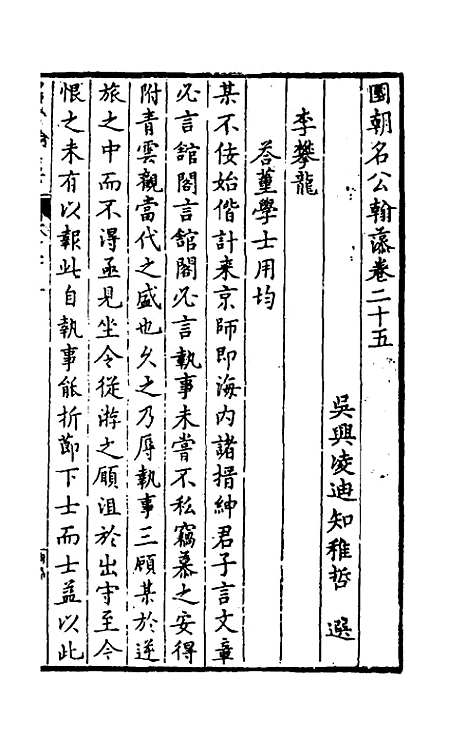 國朝名公翰藻卷二十五
吳興凌迪知稚哲 選
李攀龍
荅董學士用均
某不佞始偕計來京師即海内諸搢紳君子言文章
必言舘閣言舘閣必言執事未嘗不私竊慕之安得
附青雲觀當代之盛也乆之乃辱執事三顧某於逆
旅之中而不得亟見坐令從游之願沮於出守至今
恨之未有以報此自執事能折節下士而士益以此